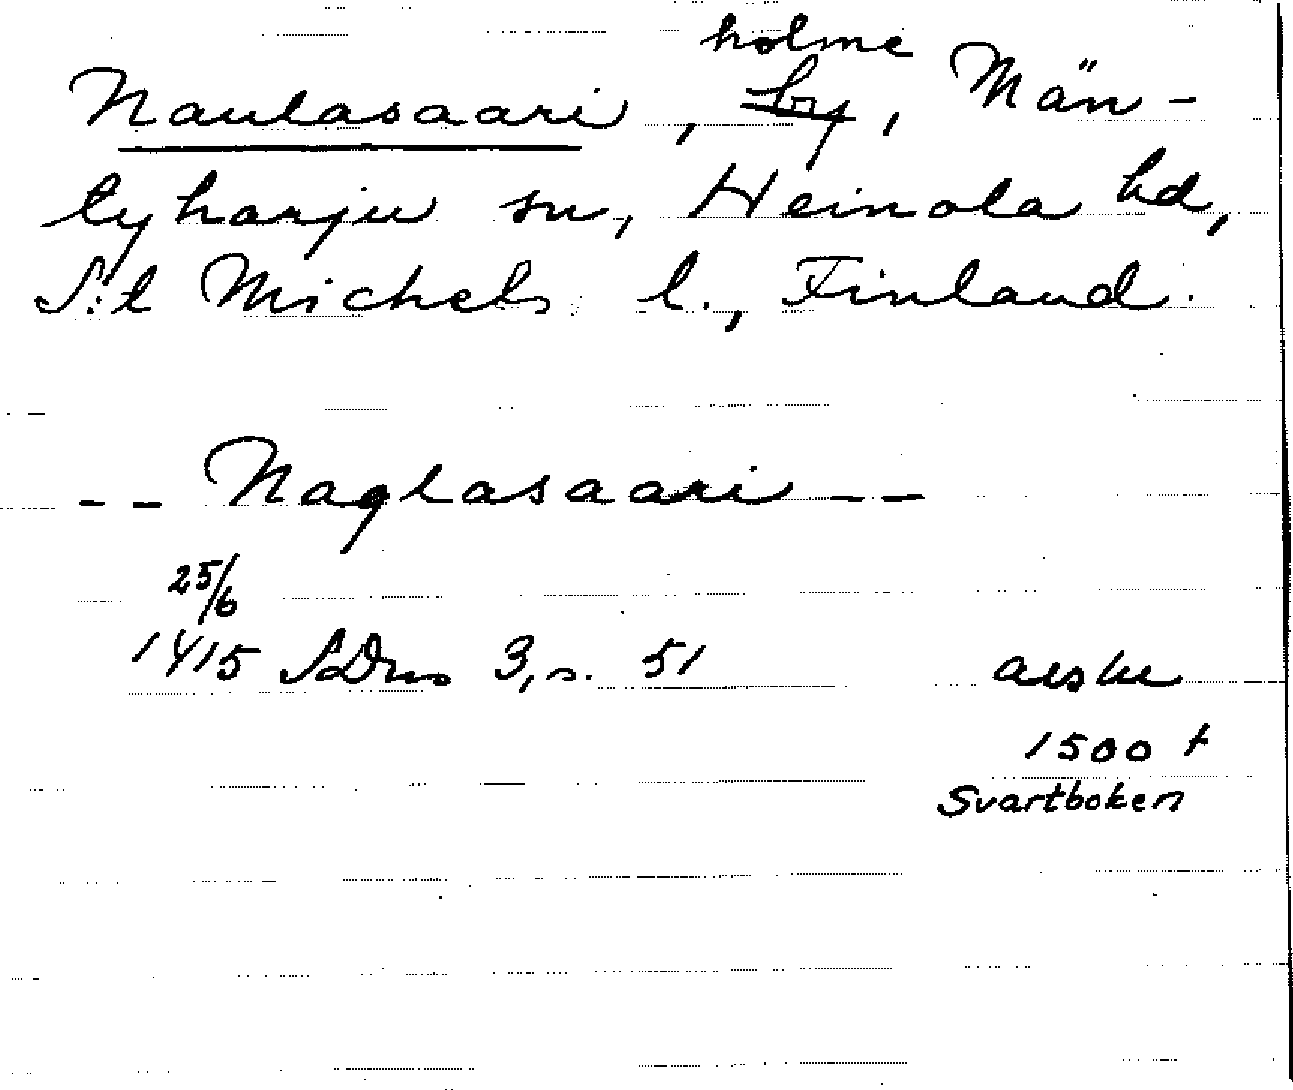 holme
Naulasaari, by, Män-
tyharju sn, Heinola hd,
S:t Michels l., Finland.
-- Naglasaari --
25/6
1415 SDns 3, s. 51 avskr
1500 t
Svartboken